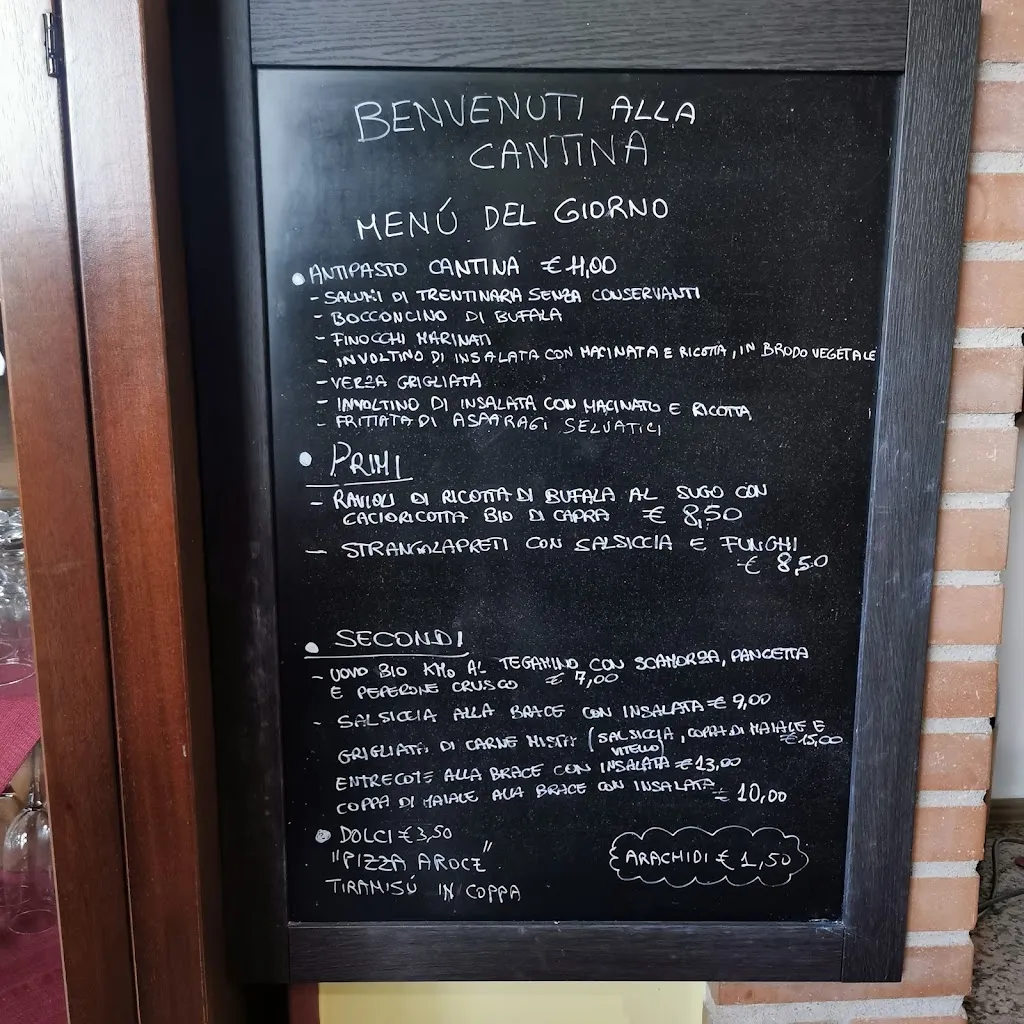 BENVENUTI ALLA
CANTINA
MENÚ DEL GIORNO
• ANTIPASTO CANTINA € 11,00
- SALUMI DI TRENTINARA SENZA CONSERVANTI
- BOCCONCINO DI BUFALA
- FINOCCHI MARINATI
- INVOLTINO DI INSALATA CON MACINATA E RICOTTA, IN BRODO VEGETALE
- VERZA GRIGLIATA
- INVOLTINO DI INSALATA CON MACINATO E RICOTTA
- FRITTATA DI ASPARAGI SELVATICI
• PRIMI
- RAVIOLI DI RICOTTA DI BUFALA AL SUGO CON
CACIORICOTTA BIO DI CAPRA € 8,50
- STRANGOLAPRETI CON SALSICCIA E FUNGHI
€ 8,50
• SECONDI
- UOVO BIO KM0 AL TEGAMINO CON SCAMORZA, PANCETTA
E PEPERONE CRUSCO € 7,00
- SALSICCIA ALLA BRACE CON INSALATA € 9,00
GRIGLIATA DI CARNE MISTA (SALSICCIA, COPPA DI MAIALE E
VITELLO) € 15,00
ENTRECOTE ALLA BRACE CON INSALATA € 13,00
COPPA DI MAIALE ALLA BRACE CON INSALATA € 10,00
• DOLCI € 3,50
"PIZZA AROCE"
TIRAMISÚ IN COPPA
ARACHIDI € 1,50